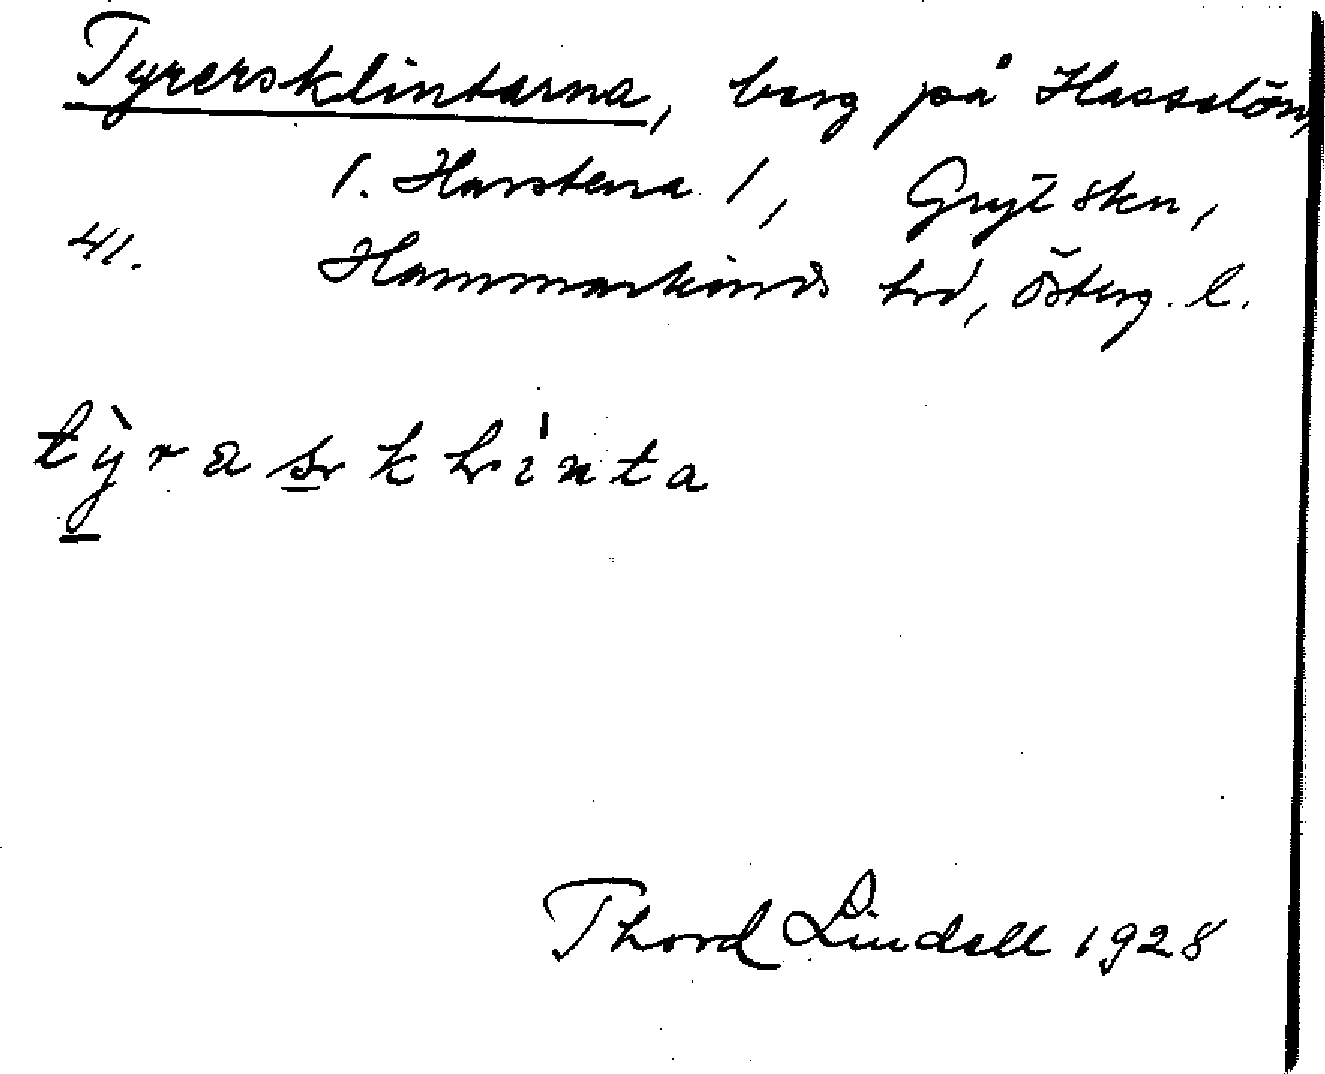 Tyrersklintarna, berg på Hasselön,
1. Harstena 1, Gryts skn,
41. Hammarkinds hrd, Österg. l.
Thord Lindell 1928